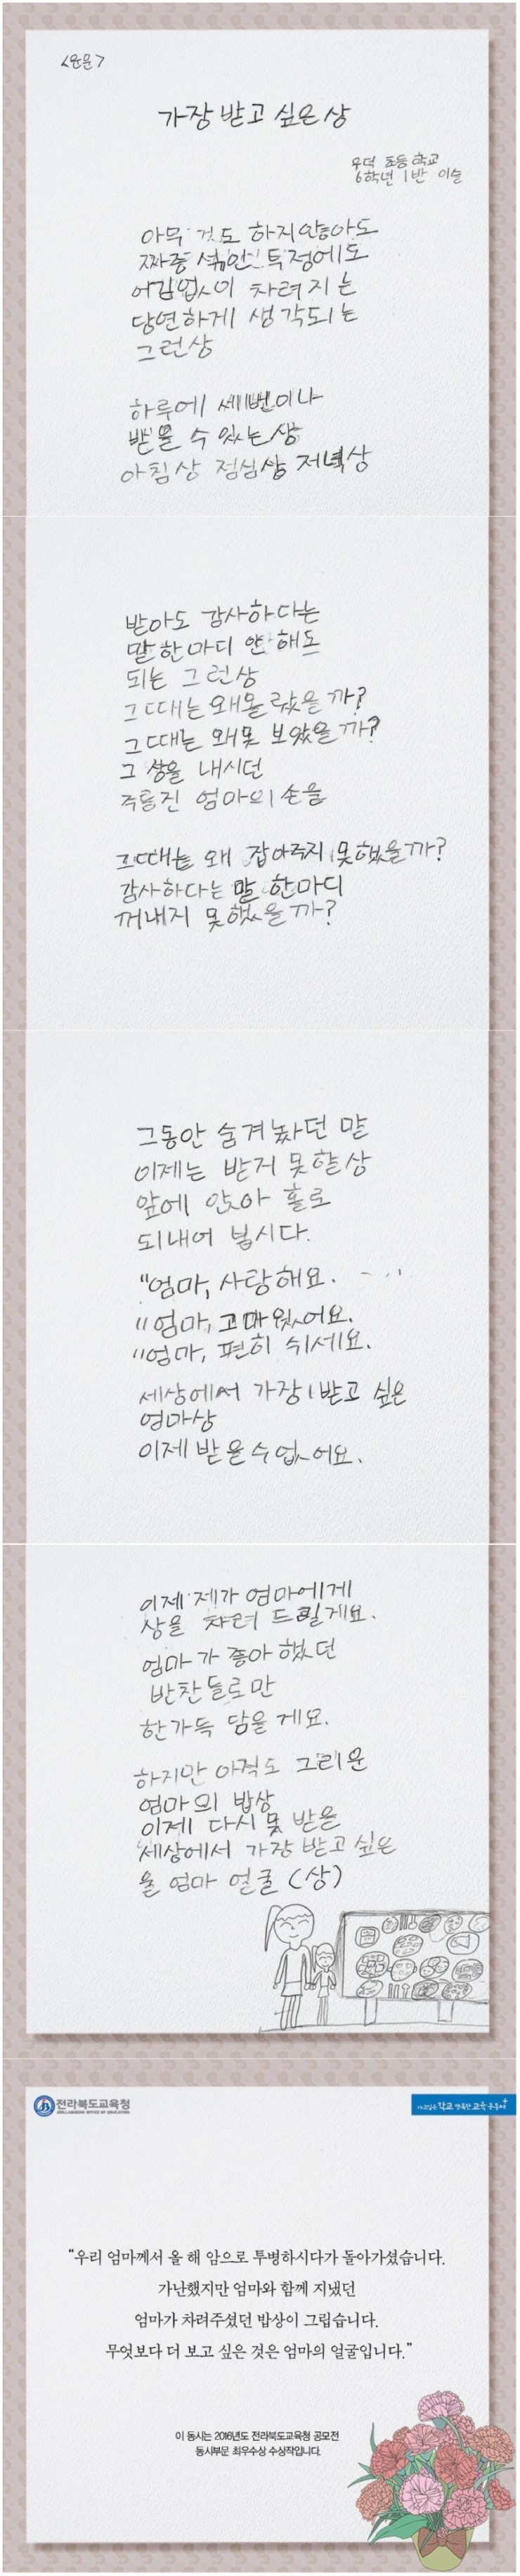 <운문>
가장 받고 싶은 상
우덕 초등학교
6학년 1반 이슬
아무 것도 하지않아도
짜증 섞인 투정에도
어김없이 차려지는
당연하게 생각되는
그런상
하루에 세번이나
받을 수 있는 상
아침상 점심상 저녁상
받아도 감사하다는
말 한마디 안 해도
되는 그런상
그때는 왜몰랐을까?
그때는 왜못 보았을까?
그 상을 내시던
주름진 엄마의 손을
그때는 왜 잡아주지 못했을까?
감사하다는 말 한마디
꺼내지 못했을까?
그동안 숨겨놨던 말
이제는 받지 못할상
앞에 앉아 홀로
되내어 봅시다.
"엄마, 사랑해요.
"엄마, 고마웠어요.
"엄마, 편히 쉬세요.
세상에서 가장 받고 싶은
엄마상
이제 받을수 없어요.
이제 제가 엄마에게
상을 차려 드릴게요.
엄마가 좋아했던
반찬들로만
한가득 담을게요.
하지만 아직도 그리운
엄마의 밥상
이제 다시 못 받을
세상에서 가장 받고 싶은
울 엄마 얼굴 (상)
전라북도교육청
JEOLLABUKDO OFFICE OF EDUCATION
"우리 엄마께서 올 해 암으로 투병하시다가 돌아가셨습니다.
가난했지만 엄마와 함께 지냈던
엄마가 차려주셨던 밥상이 그립습니다.
무엇보다 더 보고 싶은 것은 엄마의 얼굴입니다."
이 동시는 2016년도 전라북도교육청 공모전
동시부문 최우수상 수상작입니다.